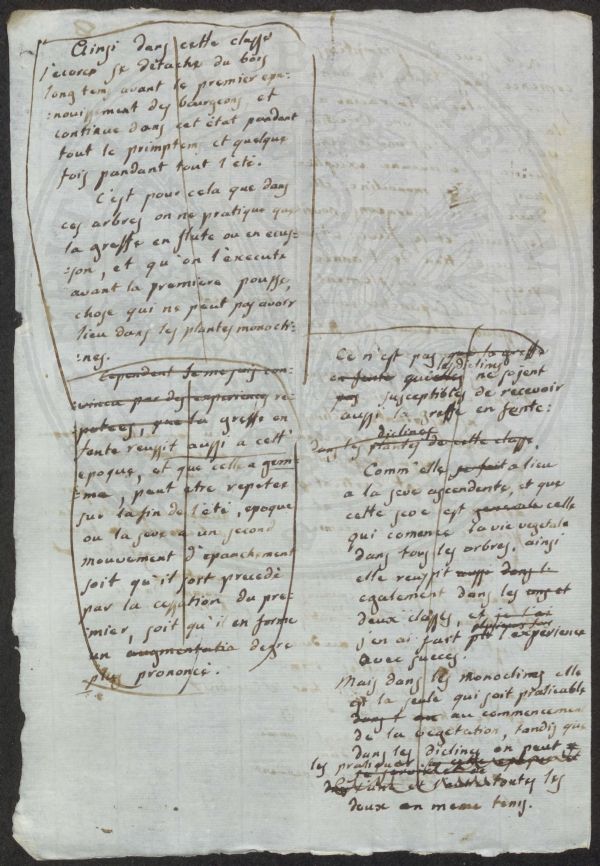 Ainsi dans cette classe
l'ecorce se détache du bois
long tems avant le premier epa-
nouissement des bourgeons et
continue dans cet état pandant
tout le primptem, et quelque
fois pandant tout l'eté.
C'est pour cela que dans
ces arbres on ne pratique que
la greffe en flute ou en ecus-
-son, et qu'on l'execute
avant la premiere pousse,
chose qui ne peut pas avoir
lieu dans les plantes monocli-
nes.
Cependent je me suis con-
vincu par des experiences re-
petees, que la greffe en
fente reussit aussi a cett'
epoque, et que celle a gem-
-me, peut etre repetee
sur la fin de l'eté, epoque
ou la seve a un second
mouvement d'epanchement
soit qu'il sort precedé
par la cessation du pre-
mier, soit qu'il en forme
un augmentatio degre
plus prononcé.
Ce n'est pas que la greffe
en fente qu'elles les diclines ne soient
pas susceptibles de recevoir
aussi la greffe en fente:
dans les diclines plantes de cette classe.
Comm'elle se fait a lieu
a la seve ascendente, et que
cette seve est generale celle
qui comence la vie vegetale
dans tous les arbres, ainsi
elle reussit aussi dans le
egalement dans les une et
deux classes, et je l'ai
j'en ai fait plusieurs fois l'experience
avec succes.
Mais dans les monoclines elle
est la seule qui soit praticable
au commencement
de la vegetation, tandis que
dans les diclines on peut
les pratiquer
et toutes les
deux en meme tems.